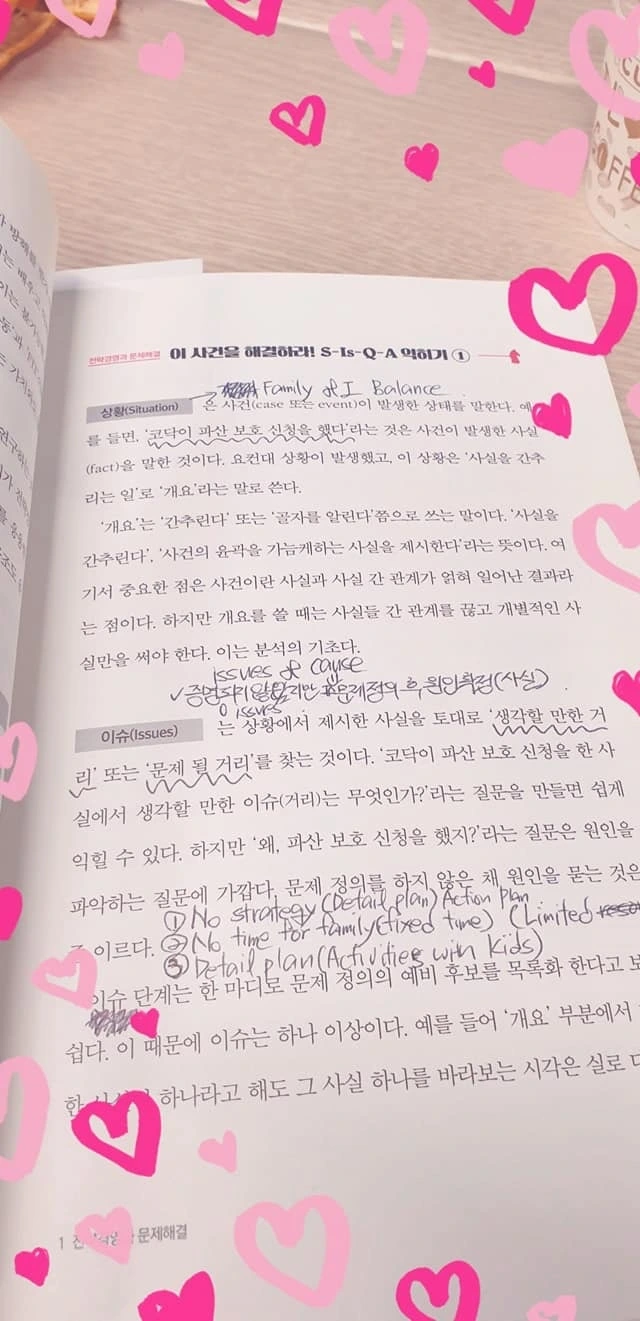 전략경영과 문제해결 이 사건을 해결하라! S-Is-Q-A 익히기 ①
Family & I Balance.
상황(Situation) 은 사건(case 또는 event)이 발생한 상태를 말한다. 예
를 들면, '코닥이 파산 보호 신청을 했다'라는 것은 사건이 발생한 사실
(fact)을 말한 것이다. 요컨대 상황이 발생했고, 이 상황은 '사실을 간추
리는 일'로 '개요'라는 말로 쓴다.
'개요'는 '간추린다' 또는 '골자를 알린다'쯤으로 쓰는 말이다. '사실을
간추린다', '사건의 윤곽을 가늠케하는 사실을 제시한다'라는 뜻이다. 여
기서 중요한 점은 사건이란 사실과 사실 간 관계가 얽혀 일어난 결과라
는 점이다. 하지만 개요를 쓸 때는 사실들 간 관계를 끊고 개별적인 사
실만을 써야 한다. 이는 분석의 기초다.
issues of cause
증명되지 않았지만 문제정의 후 원인확정(사실).
issues
이슈(Issues) 는 상황에서 제시한 사실을 토대로 '생각할 만한 거
리' 또는 '문제 될 거리'를 찾는 것이다. '코닥이 파산 보호 신청을 한 사
실에서 생각할 만한 이슈(거리)는 무엇인가?'라는 질문을 만들면 쉽게
익힐 수 있다. 하지만 '왜, 파산 보호 신청을 했지?'라는 질문은 원인을
파악하는 질문에 가깝다. 문제 정의를 하지 않은 채 원인을 묻는 것은
① No strategy (Detail plan) Action Plan
이르다. ② No time for family (fixed time) (Limited
③ Detail plan (Activities with kids)
이슈 단계는 한 마디로 문제 정의의 예비 후보를 목록화 한다고 보
쉽다. 이 때문에 이슈는 하나 이상이다. 예를 들어 '개요' 부분에서
한 하나라고 해도 그 사실 하나를 바라보는 시각은 실로 다
1 문제해결